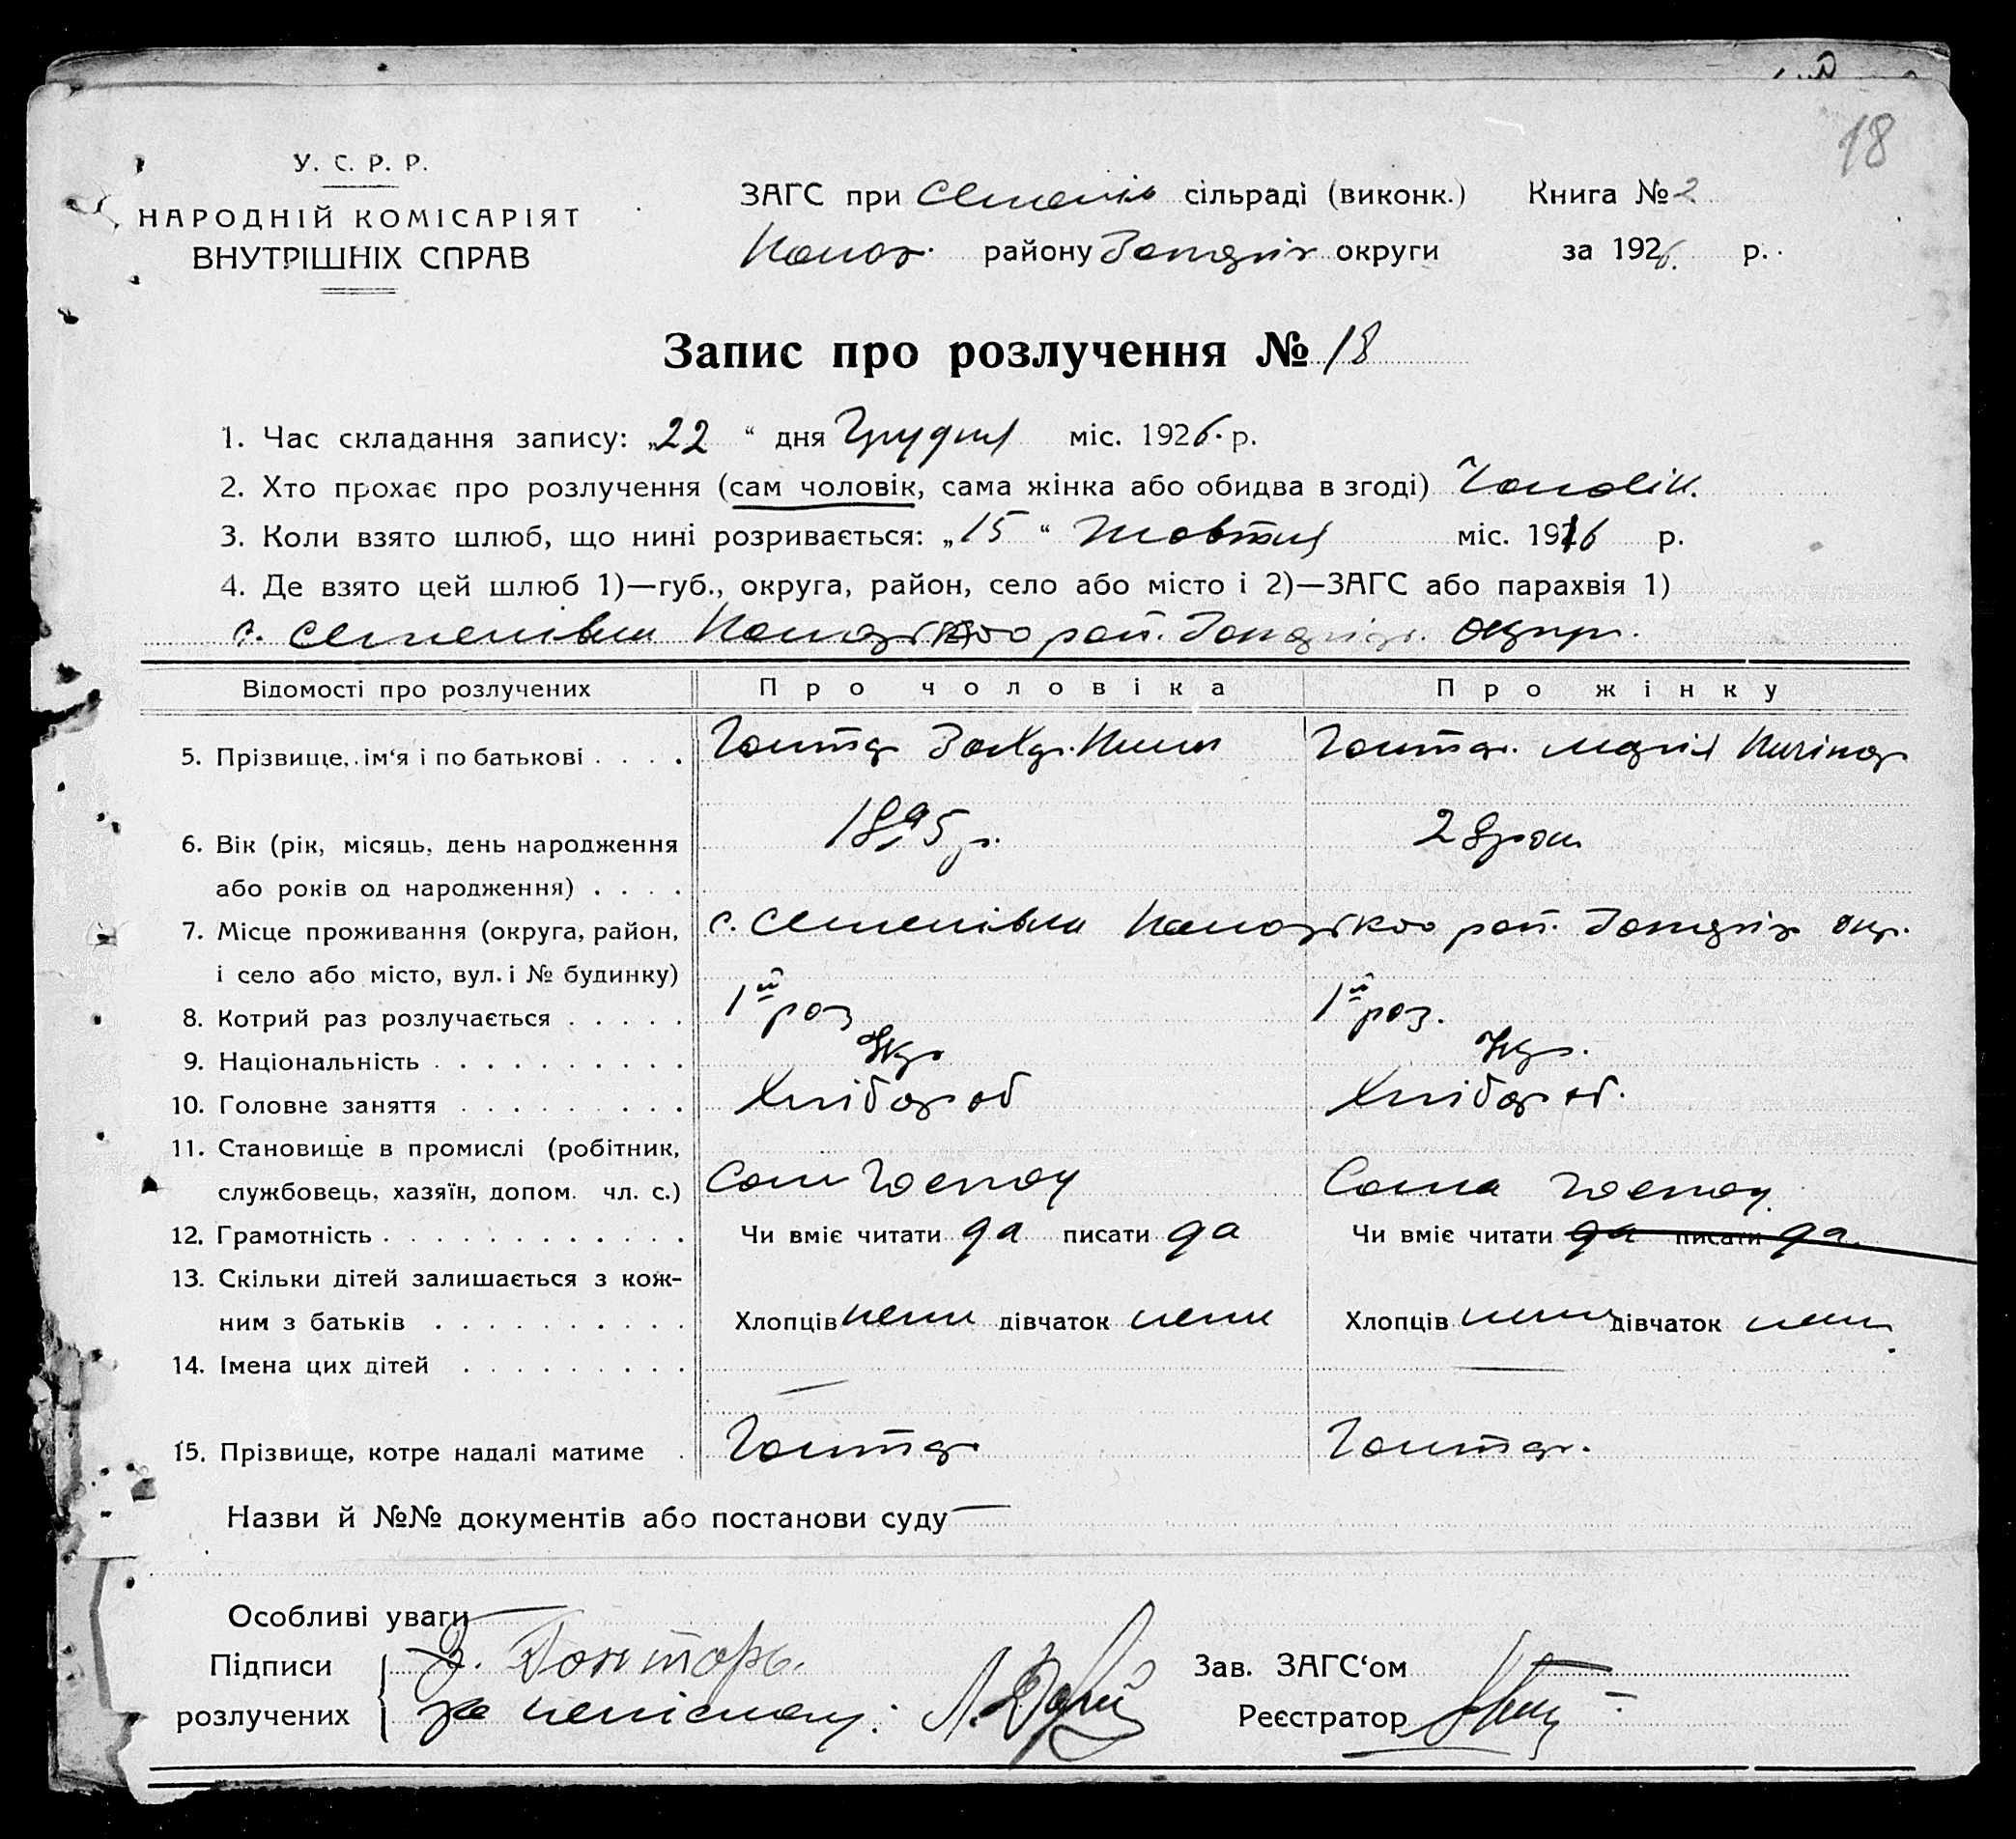 18
У. С. Р. Р.
НАРОДНІЙ КОМІСАРІЯТ
ВНУТРІШНІХ СПРАВ
ЗАГС при Семенів сільраді (виконк.) Книга № 2
району Запоріз округи за 1926. р.
Запис про розлучення № 18
1. Час складання запису: „22“ дня Грудня міс. 1926. р.
2. Хто прохає про розлучення (сам чоловік, сама жінка або обидва в згоді) Чоловік.
3. Коли взято шлюб, що нині розривається: „15“ Жовтня міс. 1916 р.
4. Де взято цей шлюб 1)—губ., округа, район, село або місто і 2)—ЗАГС або парахвія 1)
с. Семенівка рай. Запоріз. округи.
Відомості про розлучених Про чоловіка Про жінку
5. Прізвище, ім‘я і по батькові . . . . Гонтар Захар Гонтар. Марія
6. Вік (рік, місяць, день народження 1895 р. 28 рок
або років од народження) . . . .
7. Місце проживання (округа, район, с. Семенівка рай. Запоріз окр.
і село або місто, вул. і № будинку)
8. Котрий раз розлучається . . . . . 1й раз 1й раз.
9. Національність . . . . . . . . . Укр Укр.
10. Головне заняття . . . . . . . . . Хлібороб Хлібороб.
11. Становище в промислі (робітник,
службовець, хазяїн, допом. чл. с.) Сам Госпоу Сама Госпоу
12. Грамотність . . . . . . . . . . . . Чи вміє читати да писати да Чи вміє читати да писати да
13. Скільки дітей залишається з кож-
ним з батьків . . . . . . . . . . Хлопців нема дівчаток нема Хлопців нема дівчаток нема
14. Імена цих дітей . . . . . . . . . — —
15. Прізвище, котре надалі матиме . Гонтар Гонтар.
Назви й №№ документів або постанови суду —
Особливі уваги —
Підписи З. Гонтарь. Зав. ЗАГС‘ом
розлучених за неписьмену: Реєстратор